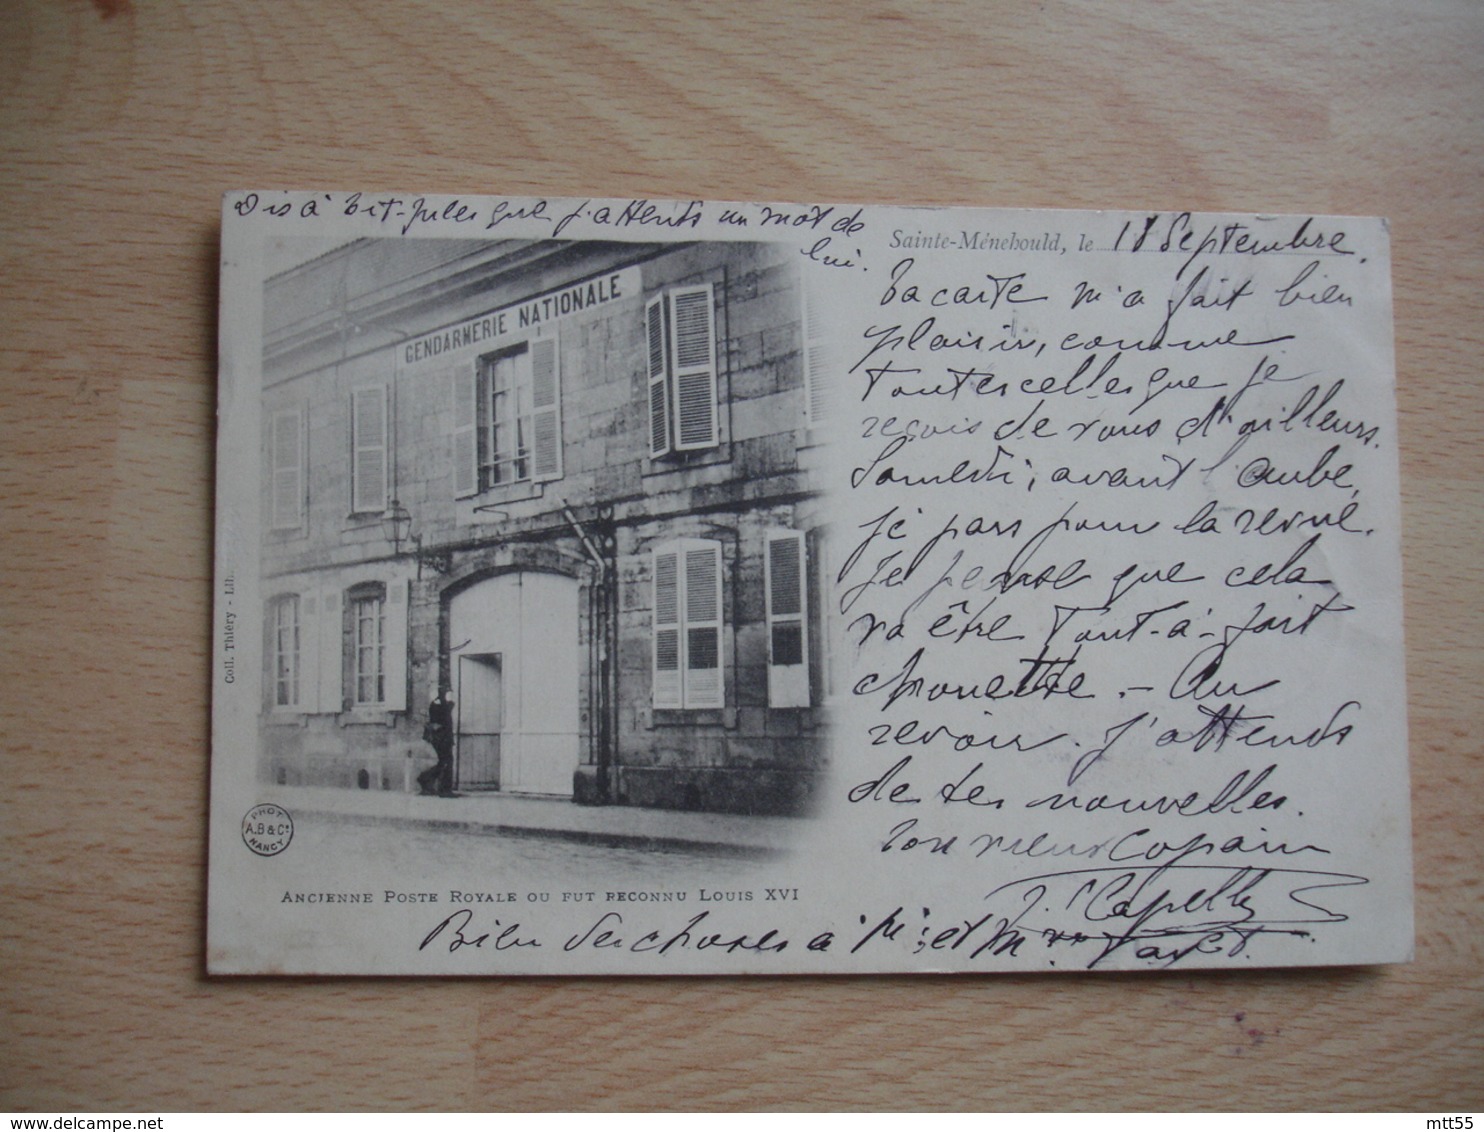 Dis à Tit-Jules que j'attends un mot de
lui.
Sainte-Ménehould, le 18 Septembre.
Ta carte m'a fait bien
plaisir, comme
toutes celles que je
reçois de vous d'ailleurs.
Samedi, avant l'aube,
je pars pour la revue.
Je pense que cela
va être tout-à-fait
chouette. - Au
revoir. J'attends
de tes nouvelles.
Ton vieux Copain
J. Capelle
Bien des choses à M. et Mme
GENDARMERIE NATIONALE
Coll. Thiéry - Lib.
PHOT.
A.B & Cie
NANCY
ANCIENNE POSTE ROYALE OU FUT RECONNU LOUIS XVI
mtt55